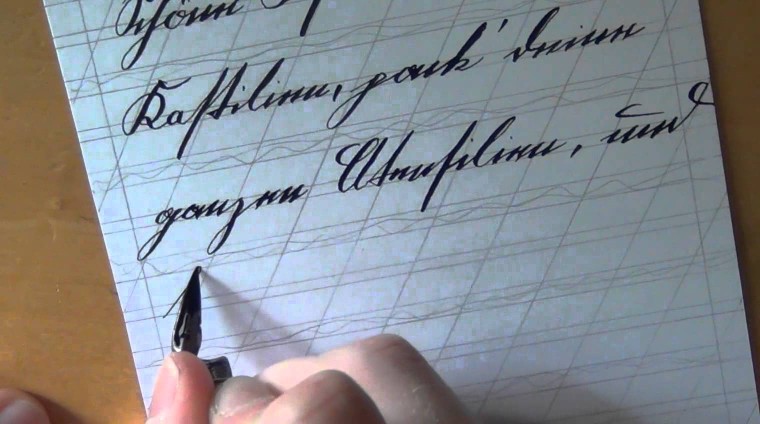 Schöne
Kastilien, pack' deine
ganzen Utensilien, und